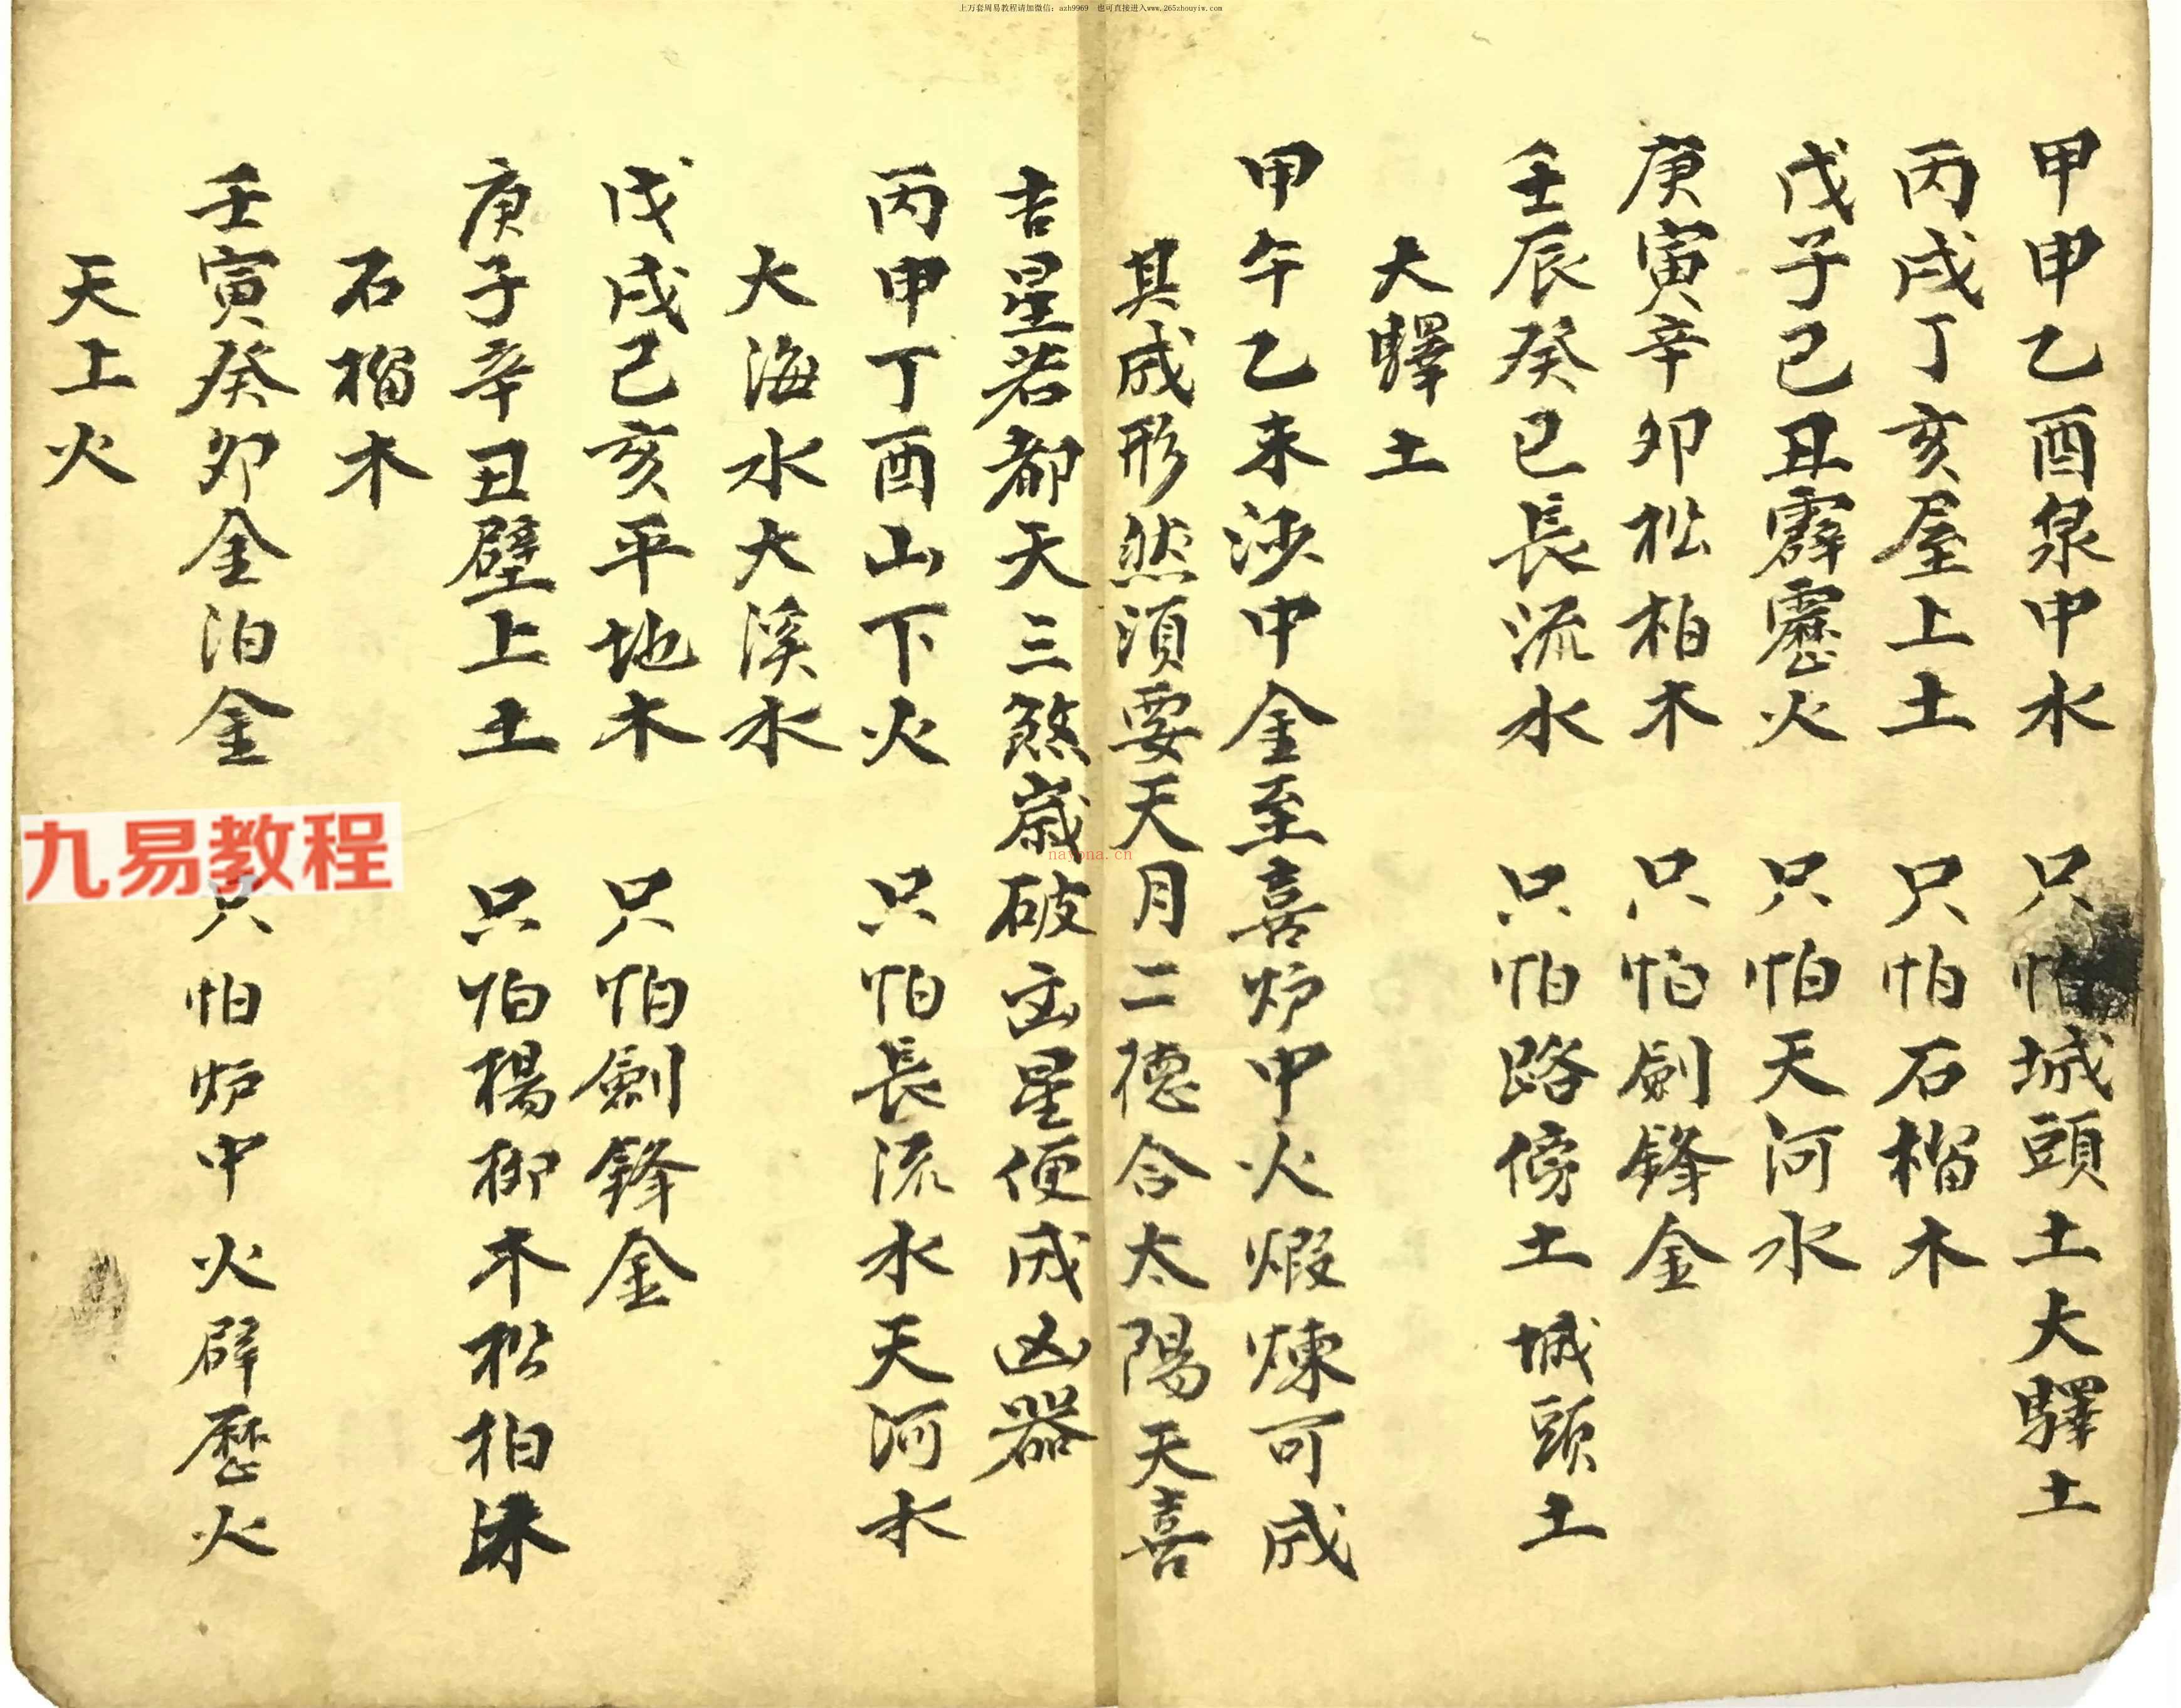 上万套周易教程请加微信：azh9969 也可直接进入www.265zhouyiw.com
甲申乙酉泉中水 只怕城頭土大驛土
丙戌丁亥屋上土 只怕石榴木
戊子己丑霹靂火 只怕天河水
庚寅辛卯松柏木 只怕劍鋒金
壬辰癸巳長流水 只怕路傍土城頭土
大驛土
甲午乙未沙中金至喜炉中火煆煉可成
其成形然須要天月二德合太陽天喜
吉星若都天三煞嵗破凶星便成凶器
丙申丁酉山下火 只怕長流水天河水
大海水大溪水
戊戌己亥平地木 只怕劍鋒金
庚子辛丑壁上土 只怕楊柳木松柏木
石榴木
壬寅癸卯金泊金 只怕炉中火辟歷火
天上火
九易教程
nayona.cn